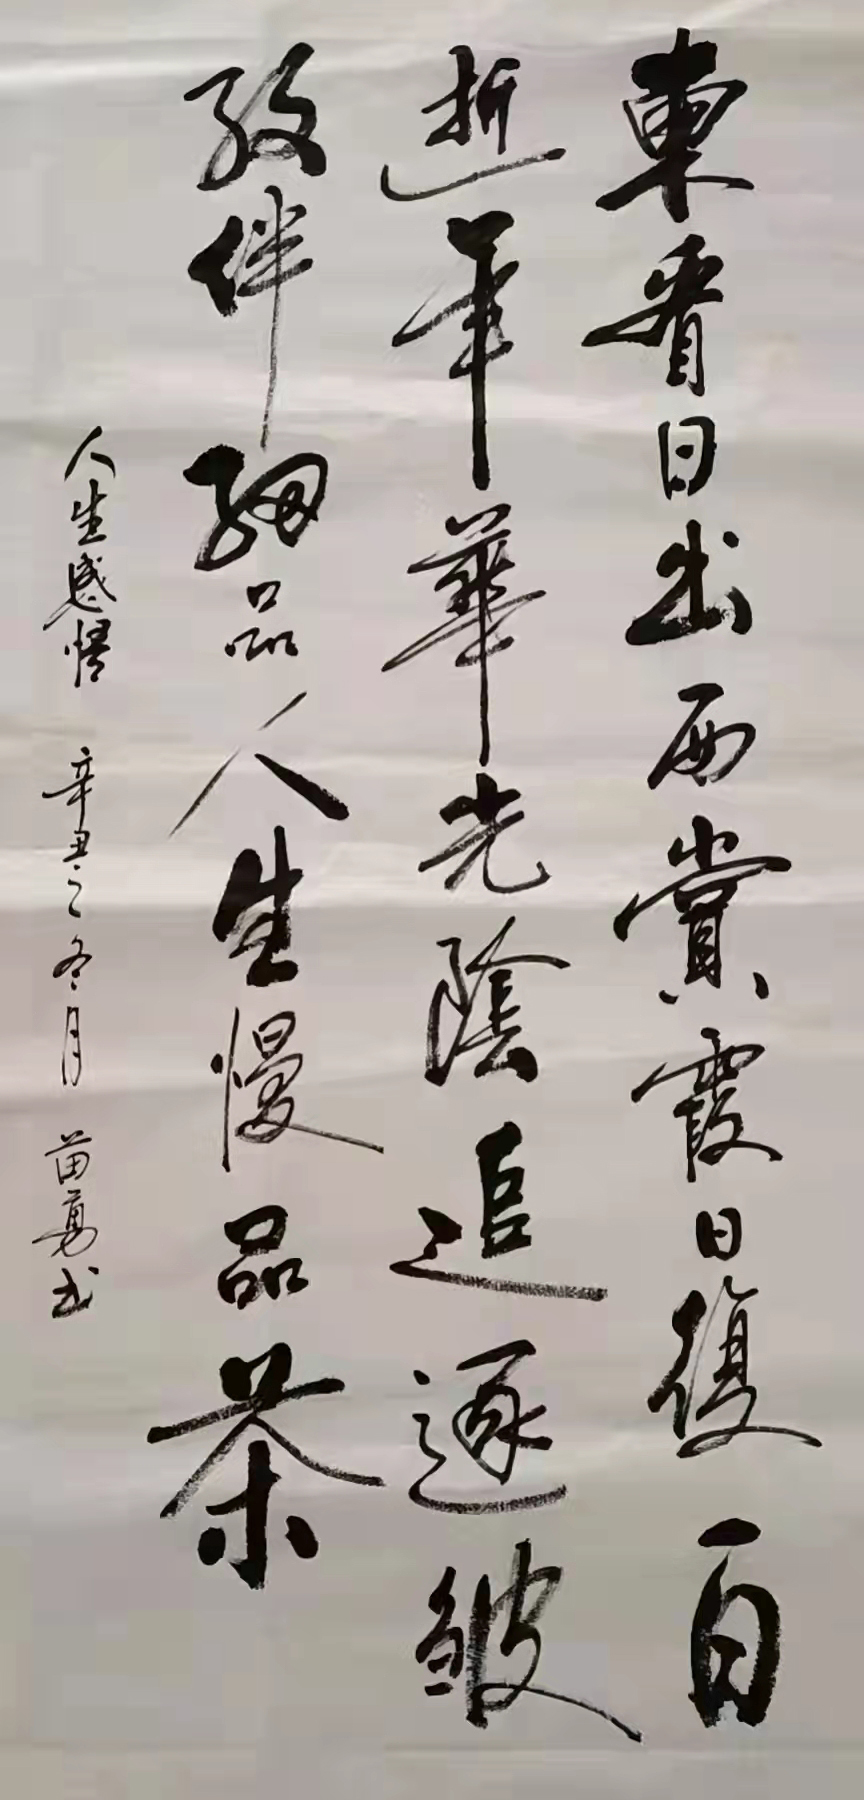 東看日出西賞霞日復日
逝年華光陰追逐皺
紋伴細品人生慢品茶
人生感悟 辛丑之冬月 苗勇书